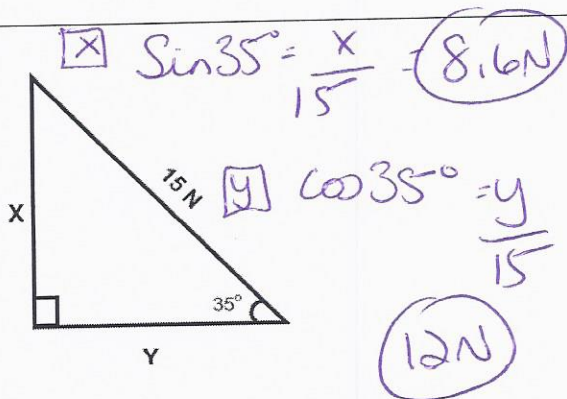 x Sin35° = x/15 = 8.6N
15 N
y cos35° = y/15
X
35°
12N
Y